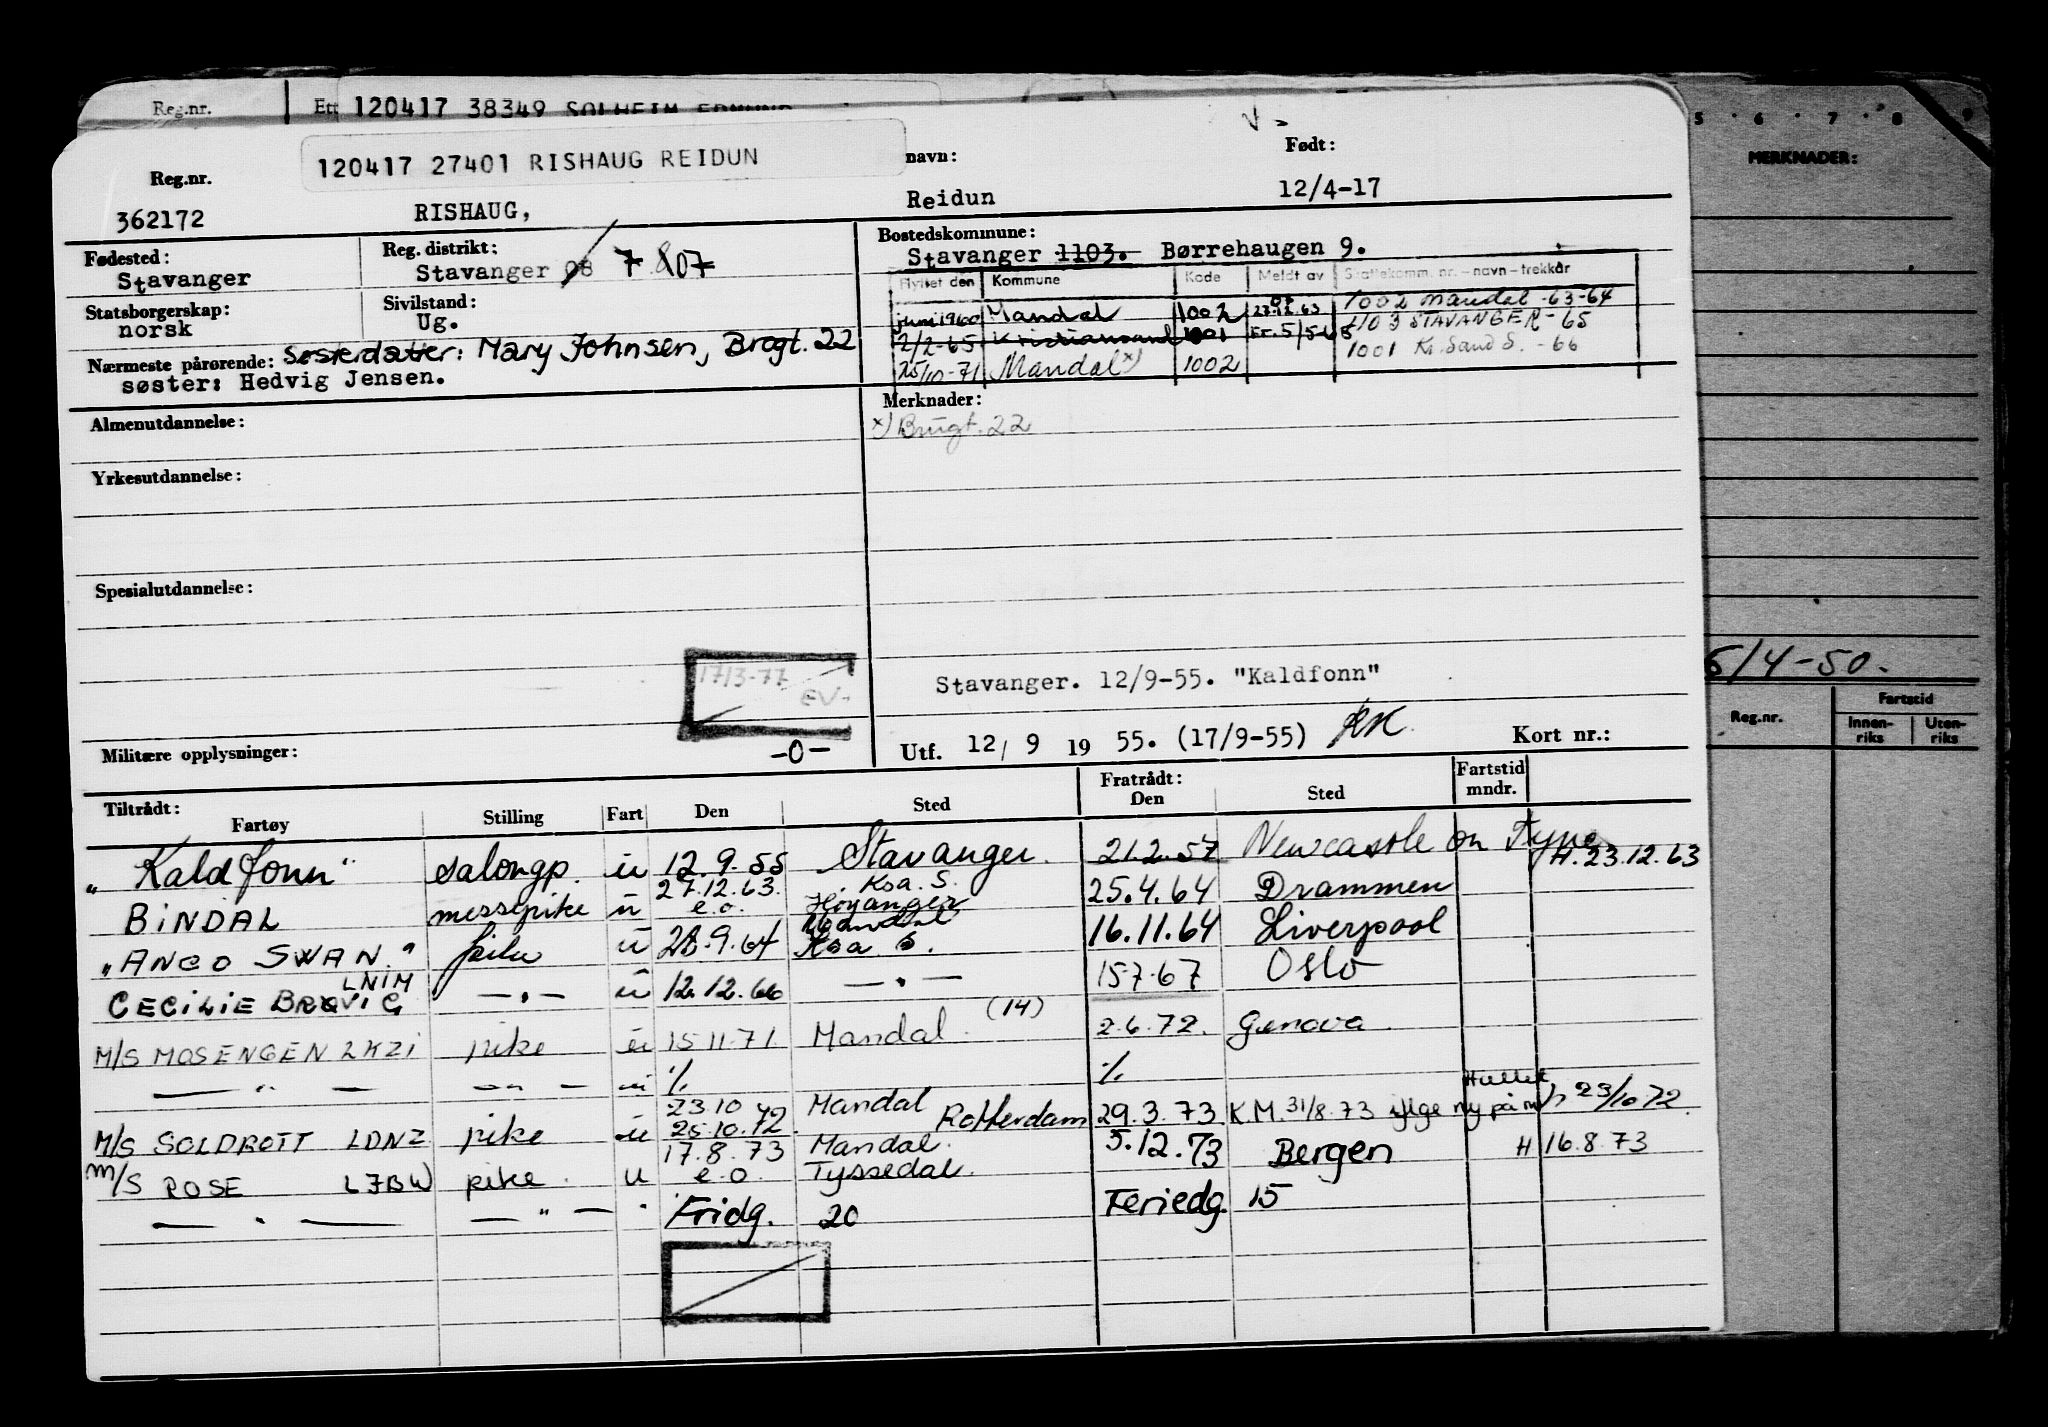 Reg.nr. Ett 120417 38349 SOLHEIM EDMUND
120417 27401 RISHAUG REIDUN navn: Født:
Reg.nr.
362172 RISHAUG, Reidun 12/4-17
Fødested: Reg. distrikt: Bostedskommune:
Stavanger Stavanger 08 7 807 Stavanger 1103. Børrehaugen 9.
Statsborgerskap: Sivilstand:
norsk Ug.
Flyttet den Kommune Kode Meldt av Skattekomm. nr.-navn-trekkår
juni 1960 Mandal 1002 1002 Mandal -63-64
2/2-65 Kristiansand 1001 1103 STAVANGER - 65
25/10-71 Mandal x) 1002 1001 Kr.Sand S. - 66
Nærmeste pårørende: Søsterdatter: Mary Johnsen, Brogt. 22
søster: Hedvig Jensen.
Almenutdannelse: Merknader:
x) Brugt. 22
Yrkesutdannelse:
Spesialutdannelse:
17/3-77 EV.
Stavanger. 12/9-55. "Kaldfonn"
Militære opplysninger: -0- Utf. 12/ 9 19 55. (17/9-55) Kort nr.:
Tiltrådt: Fratrådt: Fartstid
Fartøy Stilling Fart Den Sted Den Sted mndr.
"Kaldfonn" salongp. u 12.9.55 Stavanger. 21.2.57 Newcastle on Tyne H. 23.12.63
27.12.63. Ksa. S.
BINDAL messepike u e.o. Høyanger 25.4.64 Drammen
Mandal
"ANCO SWAN." pike u 28.9.64 Ksa. S. 16.11.64 Liverpool
LNIM
CECILIE BRØVIG — " — u 12.12.66 — " — 15.7.67 Oslo
(14)
M/S MOSENGEN LKZI pike u 15.11.71 Mandal. 2.6.72. Genova
— " — — " — u % %
23.10 Mandal
M/S SOLDROTT LDNZ pike u 25.10.72. Rotterdam 29.3.73 K.M. 31/8.73 iflge ny på m h 23/10 72.
17.8.73 Mandal.
M/S ROSE LJBW pike u e.o. Tyssedal. 5.12.73 Bergen H 16.8.73
— " — — " — " Fridg. 20 Feriedg. 15
5 · 6 · 7 · 8 9
MERKNADER:
/4-50.
Reg.nr. Fartstid
Innenriks Utenriks